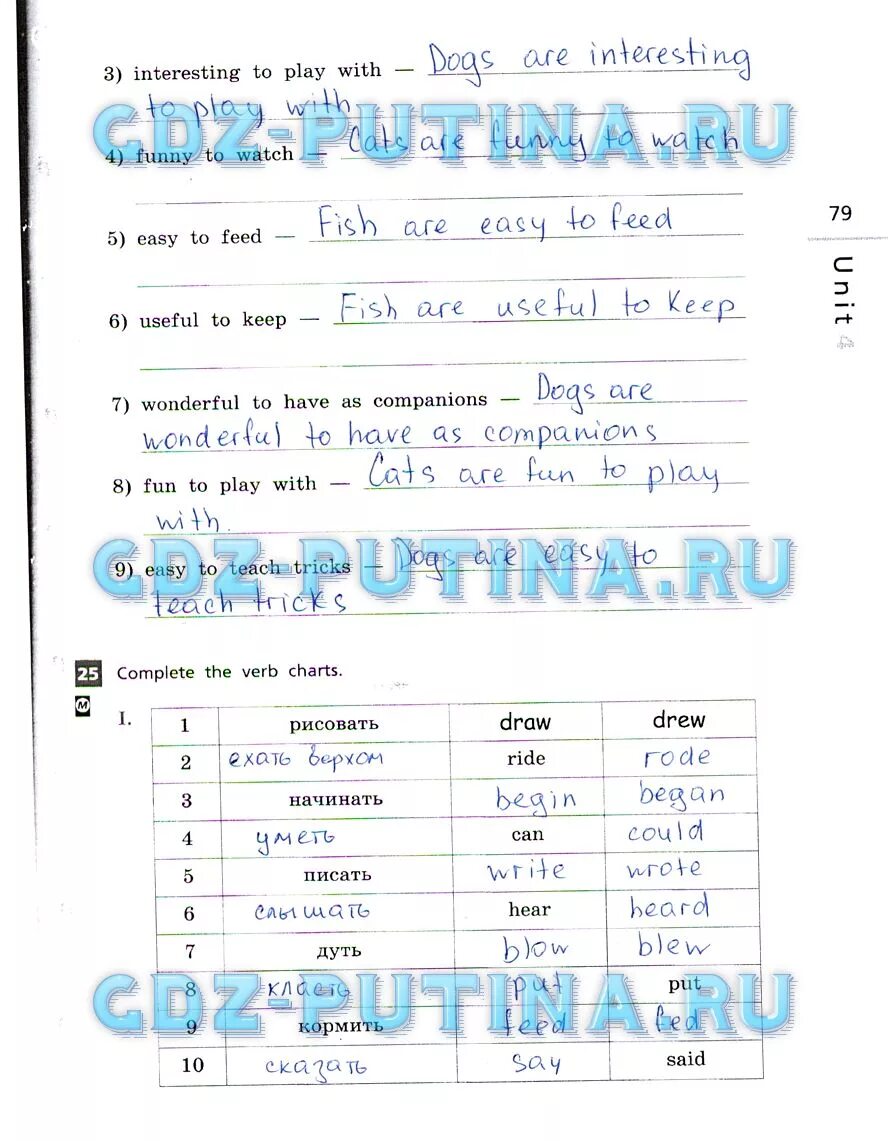 3) interesting to play with — Dogs are interesting
to play with
GDZ-PUTINA.RU
4) funny to watch — Cats are funny to watch
79
5) easy to feed — Fish are easy to feed
Unit 4
6) useful to keep — Fish are useful to keep
7) wonderful to have as companions — Dogs are
wonderful to have as companions
8) fun to play with — Cats are fun to play
with.
GDZ-PUTINA.RU
9) easy to teach tricks — Dogs are easy to
teach tricks
25 Complete the verb charts.
M
I.
1 рисовать draw drew
2 ехать верхом ride rode
3 начинать begin began
4 уметь can could
5 писать write wrote
6 слышать hear heard
7 дуть blow blew
GDZ-PUTINA.RU
8 класть put put
9 кормить feed fed
10 сказать say said